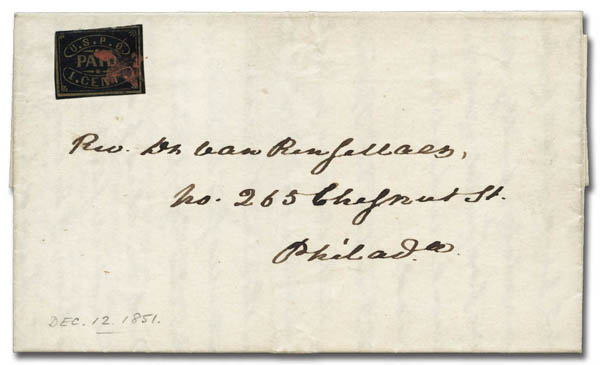 U.S.P.O.
PAID
1.CENT.
Rev. Dr. Van Rensellaer,
No. 265 Chesnut St.
Philada.
DEC. 12. 1851.